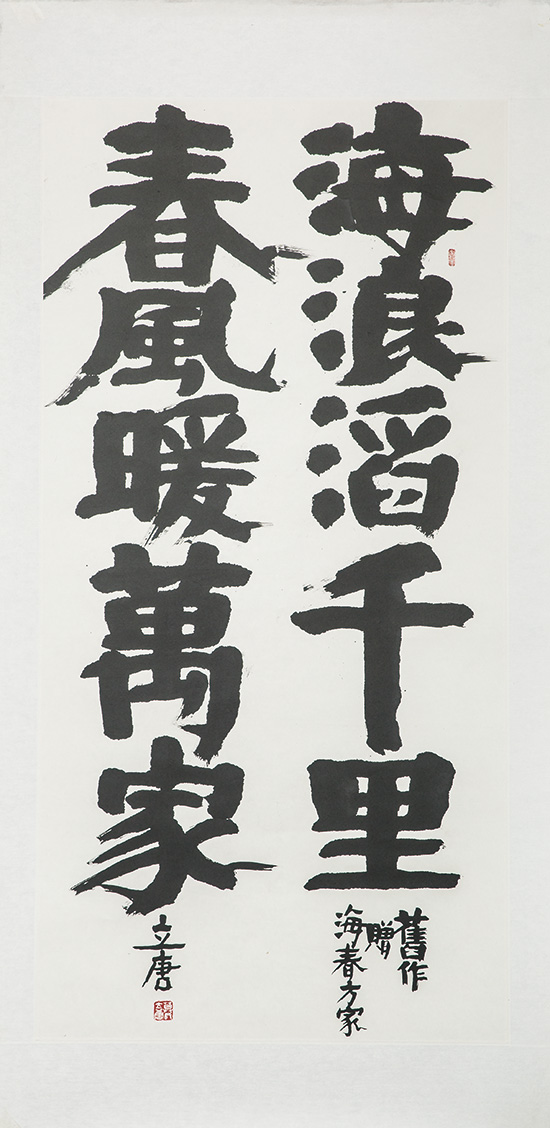 海浪滔千里
舊作
贈
海春方家
春風暖萬家
立唐